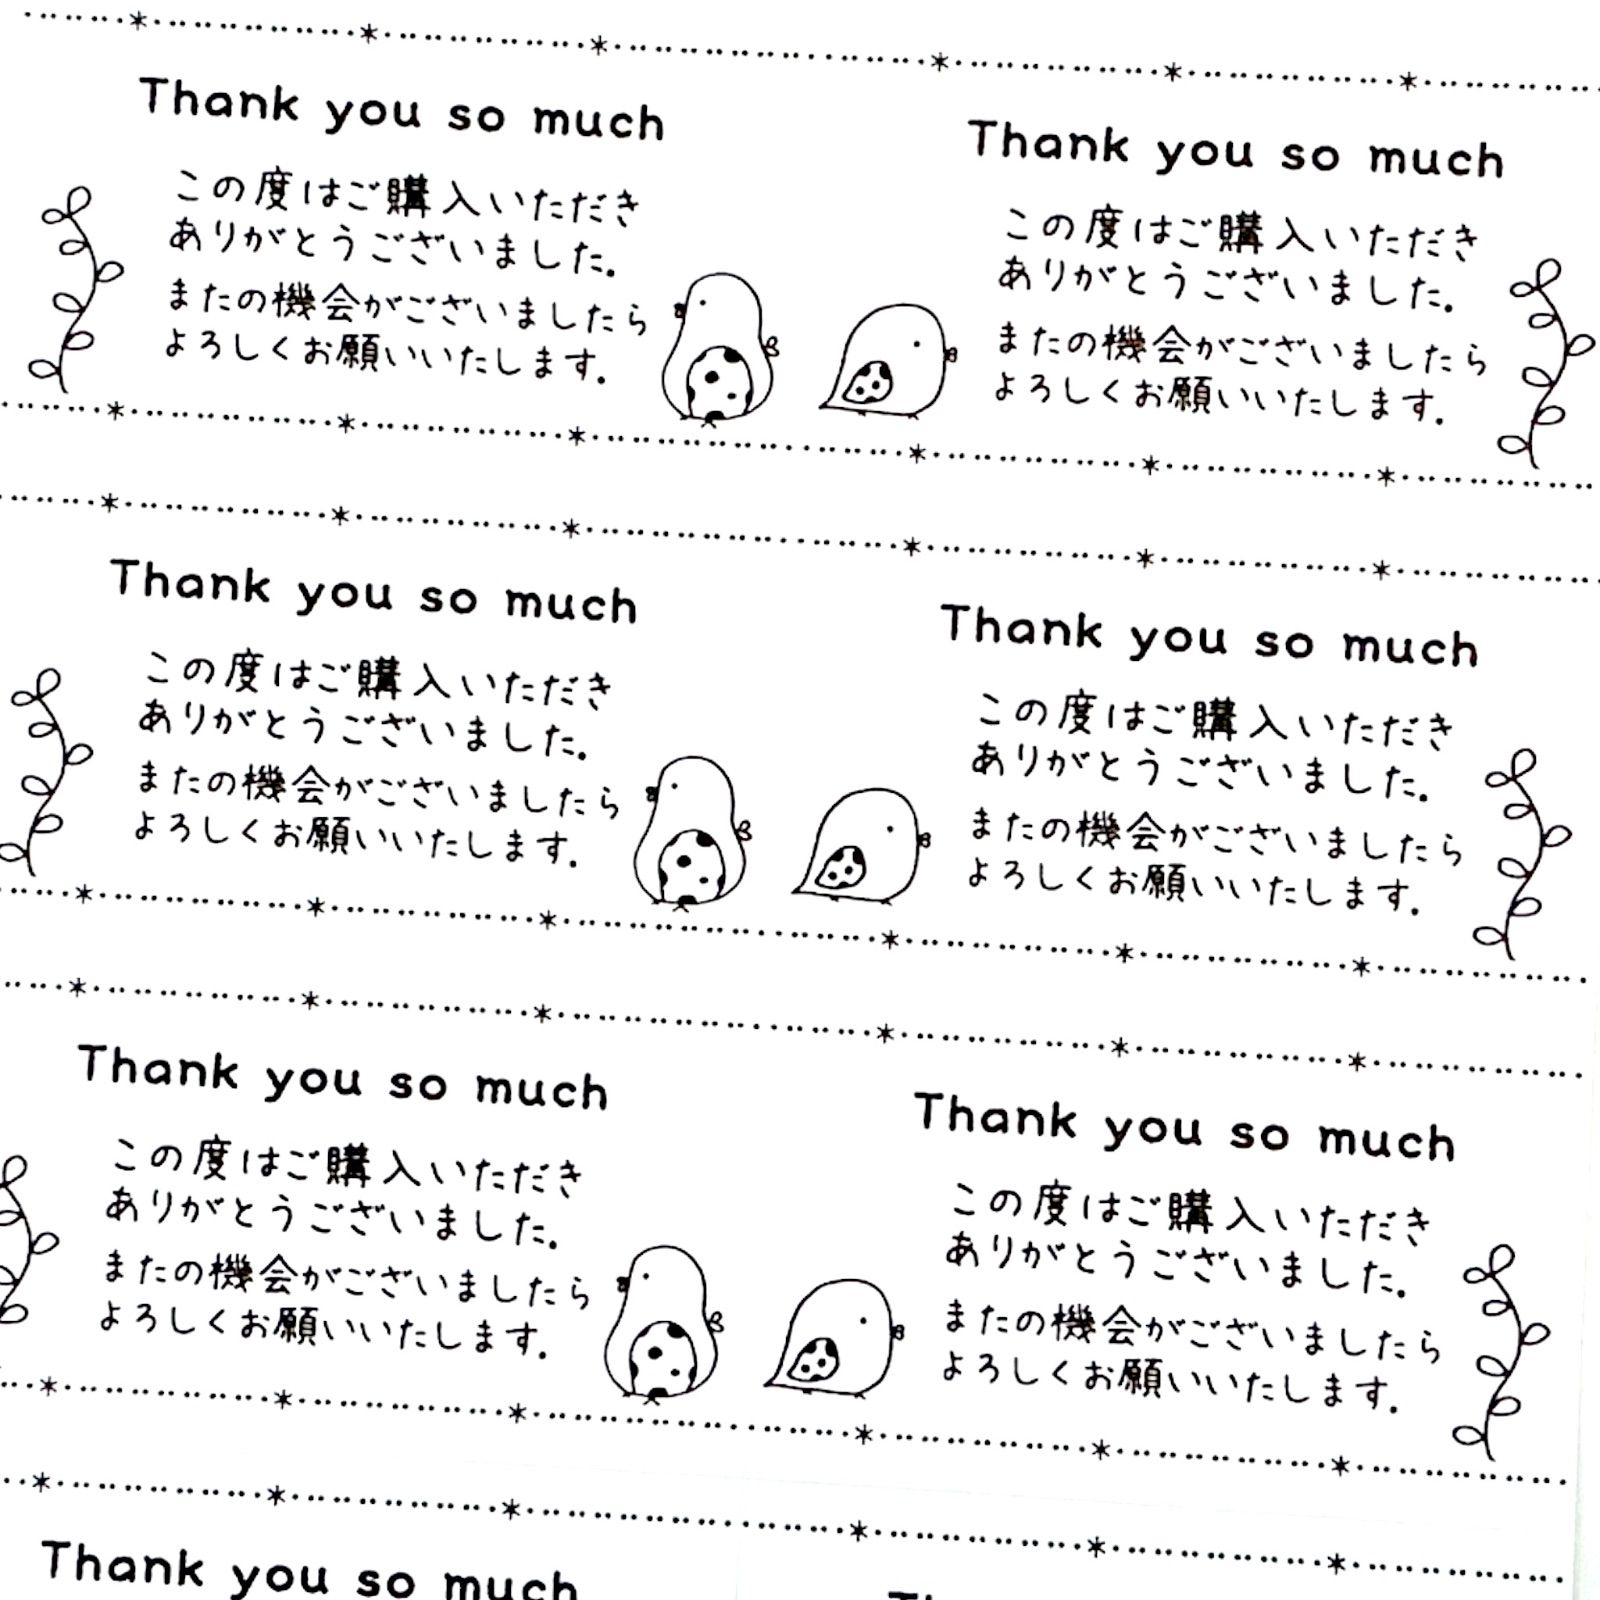 Thank you so much
この度はご購入いただき
ありがとうございました。
またの機会がございましたら
よろしくお願いいたします。
Thank you so much
この度はご購入いただき
ありがとうございました。
またの機会がございましたら
よろしくお願いいたします。
Thank you so much
この度はご購入いただき
ありがとうございました。
またの機会がございましたら
よろしくお願いいたします。
Thank you so much
この度はご購入いただき
ありがとうございました。
またの機会がございましたら
よろしくお願いいたします。
Thank you so much
この度はご購入いただき
ありがとうございました。
またの機会がございましたら
よろしくお願いいたします。
Thank you so much
この度はご購入いただき
ありがとうございました。
またの機会がございましたら
よろしくお願いいたします。
Thank you so much